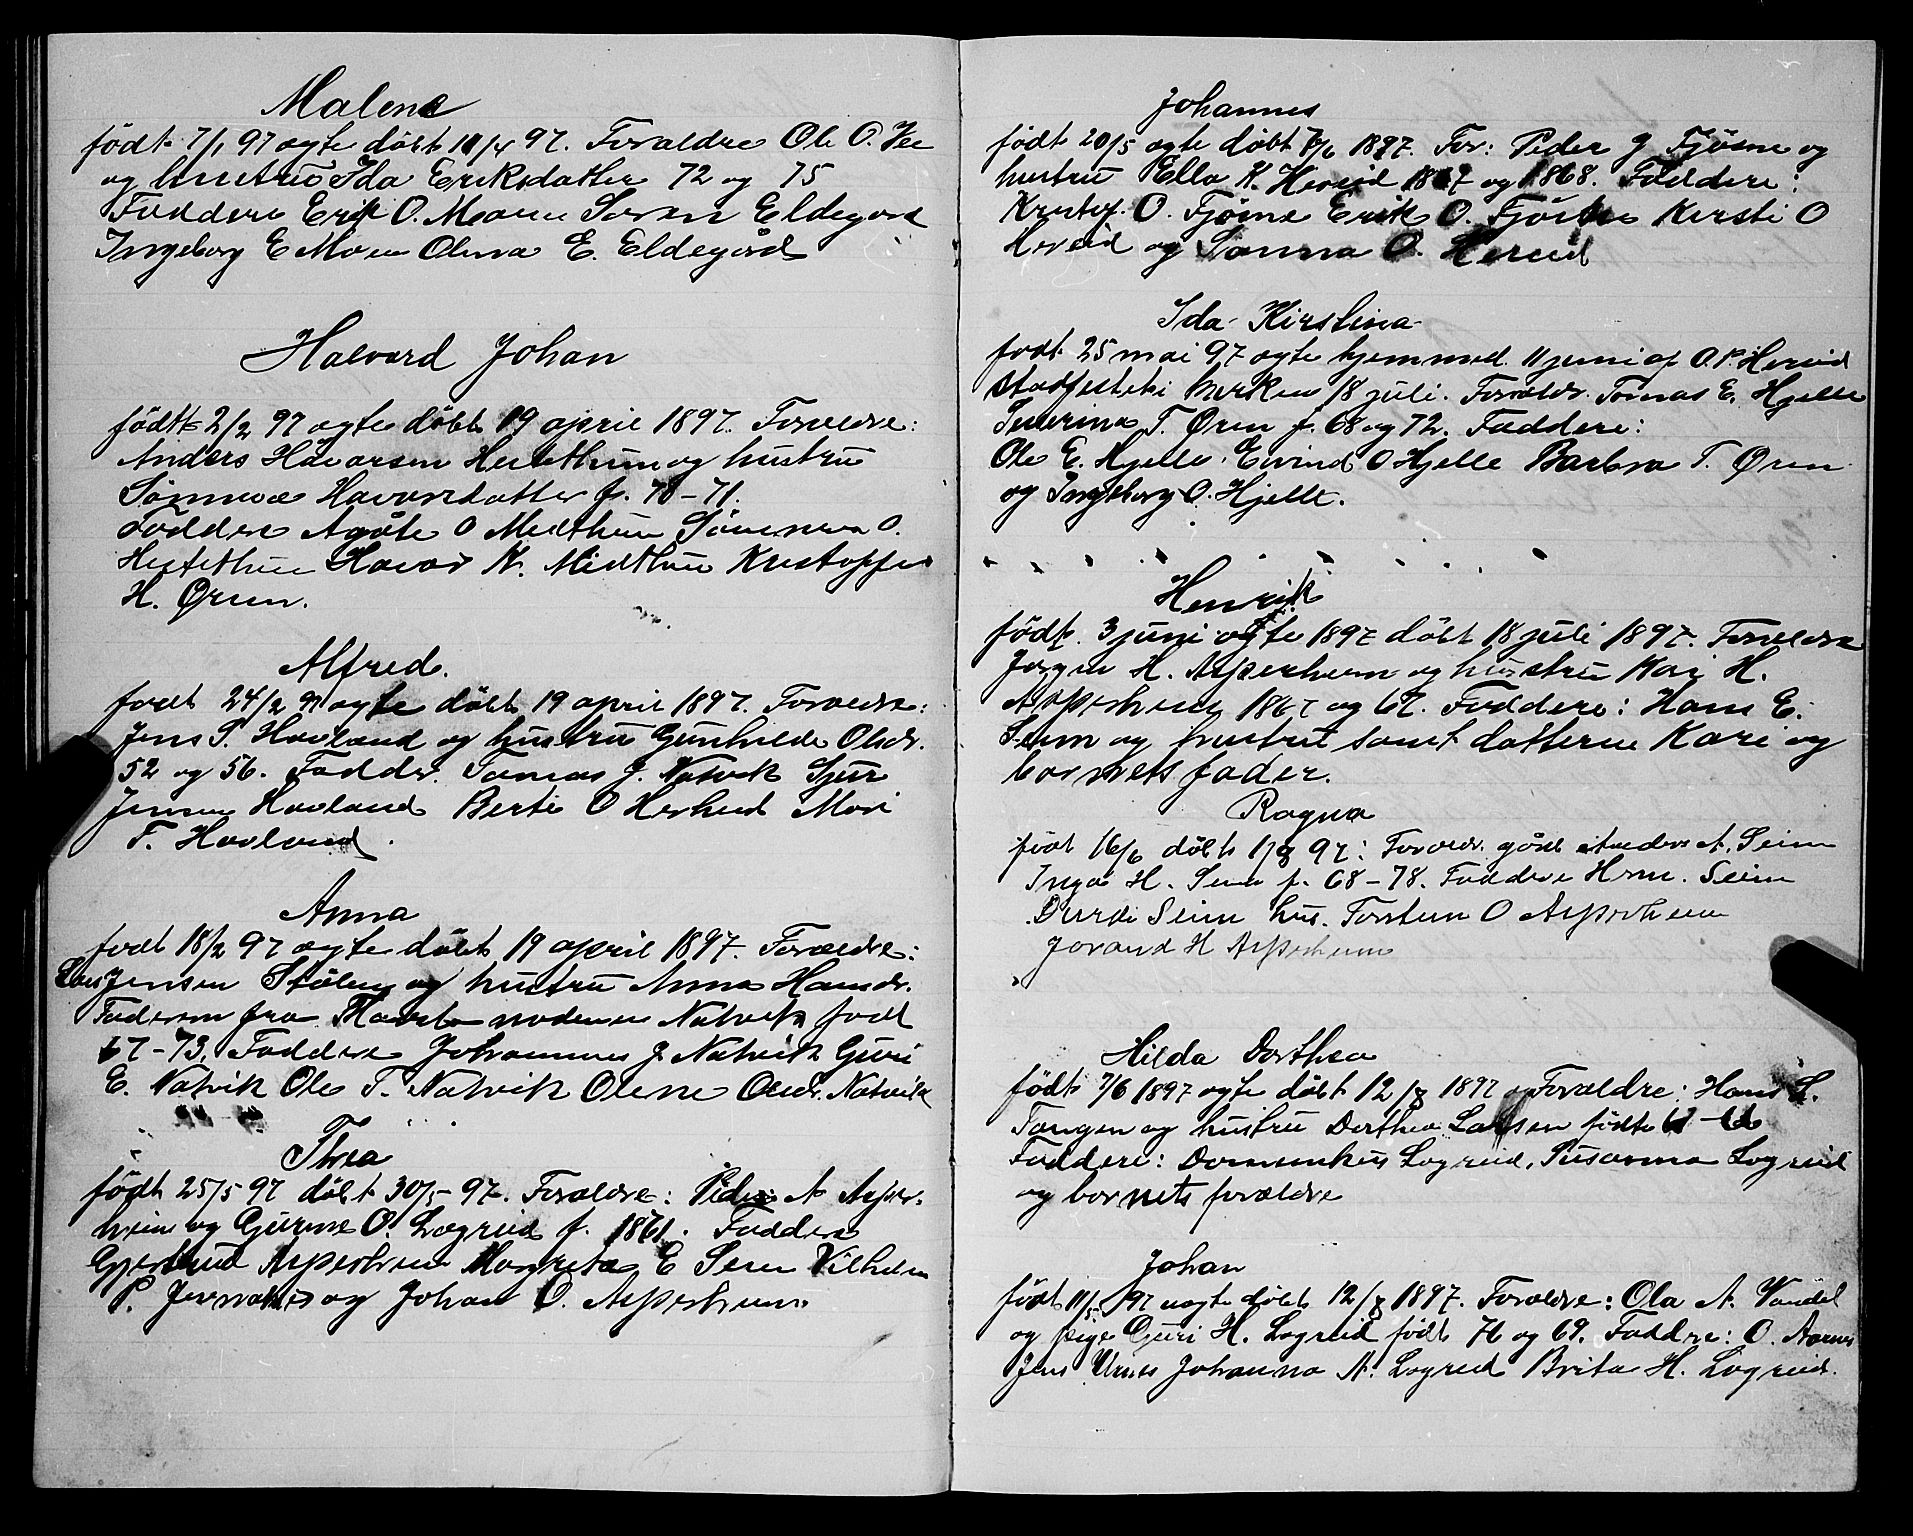 Malene
født 7/1 97 ægte døbt 11/4 97. Forældre Ole O. Vee
og hustru Ida Eriksdatter 72 og 75
Faddere Erik O. Moen Søren Eldegård
Ingeborg E Moen Olina E. Eldegård
Halvard Johan
født 2/2 97 ægte døbt 19 april 1897. Forældre:
Anders Håvarsen Hestethun og hustru
Sønneva Havarsdatter f. 70-71.
Faddere Agåte O Midthun Sønneva O.
Hestethun Havar N. Midthun Kristoffer
H. Øren.
Alfred.
født 24/2 97 ægte døbt 19 april 1897. Forældre:
Jens S. Hovland og hustru Gunhilde Olsdr.
52 og 56. Faddr. Tomas J. Natvik Sjur
Jensen Hovland Berte O Herheid Mari
T. Hovland.
Anna
født 18/2 97 ægte døbt 19 april 1897. Forældre:
Lars Jensen Stølen og hustru Anna Hansdr.
Faderen fra moderen Natvik født
67-73. Faddere Johannes J. Natvik Guri
E. Natvik Ole T. Natvik Olene Olsdr. Natvik
Thea
født 25/5 97 døbt 30/5 97. Forældre: Peder A Asper-
heim og Gjurine O. Lægreid f. 1861. Faddere
Gjertrud Asperheim Margreta E Seim Vilhelm
P. og Johan O. Asperheim.
Johannes
født 20/5 ægte døbt 7/6 1897. For: Peder J Fjøsne og
hustru Ella K. Hereid 1867 og 1868. Faddere:
Kristof. O. Fjøsne Erik O. Fjøsne Kersti O
Hereid og Sanna O. Hereid
Ida Kirstina
født 25 mai 97 ægte hjemmed. 11 juni af O. P. Hereid
stadfestet i kirken 18 juli. Forældr. Tomas E. Hjelle
Severina T. Øren f. 68 og 72. Faddere:
Ole E. Hjelle. Eivind O Hjelle Barbra T. Øren
og Ingeborg O. Hjelle.
Henrik
født 3 juni ægte 1897 døbt 18 juli 1897. Forældre
Jørgen H. Asperheim og hustru Kari H.
Asperheim 1867 og 67. Faddere: Hans E.
Seim og hustru samt datteren Kari og
barnets fader.
Ragna
født 16/6 døbt 1/8 97: Forældr. gårdb Anders A. Seim
Inga H. Seim f. 68-78. Faddere Hrm. Seim
Durdi Seim hus. Torstein O Asperheim
Jorand H Asperheim
Hilda Dorthea
født 7/6 1897 ægte døbt 12/8 1897 Forældre: Hans L.
Tangen og hustru Dorthea Larsen født
Faddere: Lægreid, Susanna Lægreid
og barnets forældre
Johan
født 11/5 97 uægte døbt 12/8 1897. Forældre: Ola A. Vandel
og pige Guri H. Lægreid født 76 og 69. Faddre: O. Aarnes
Jens Urnes Johanna A. Lægreid Brita H. Lægreid.